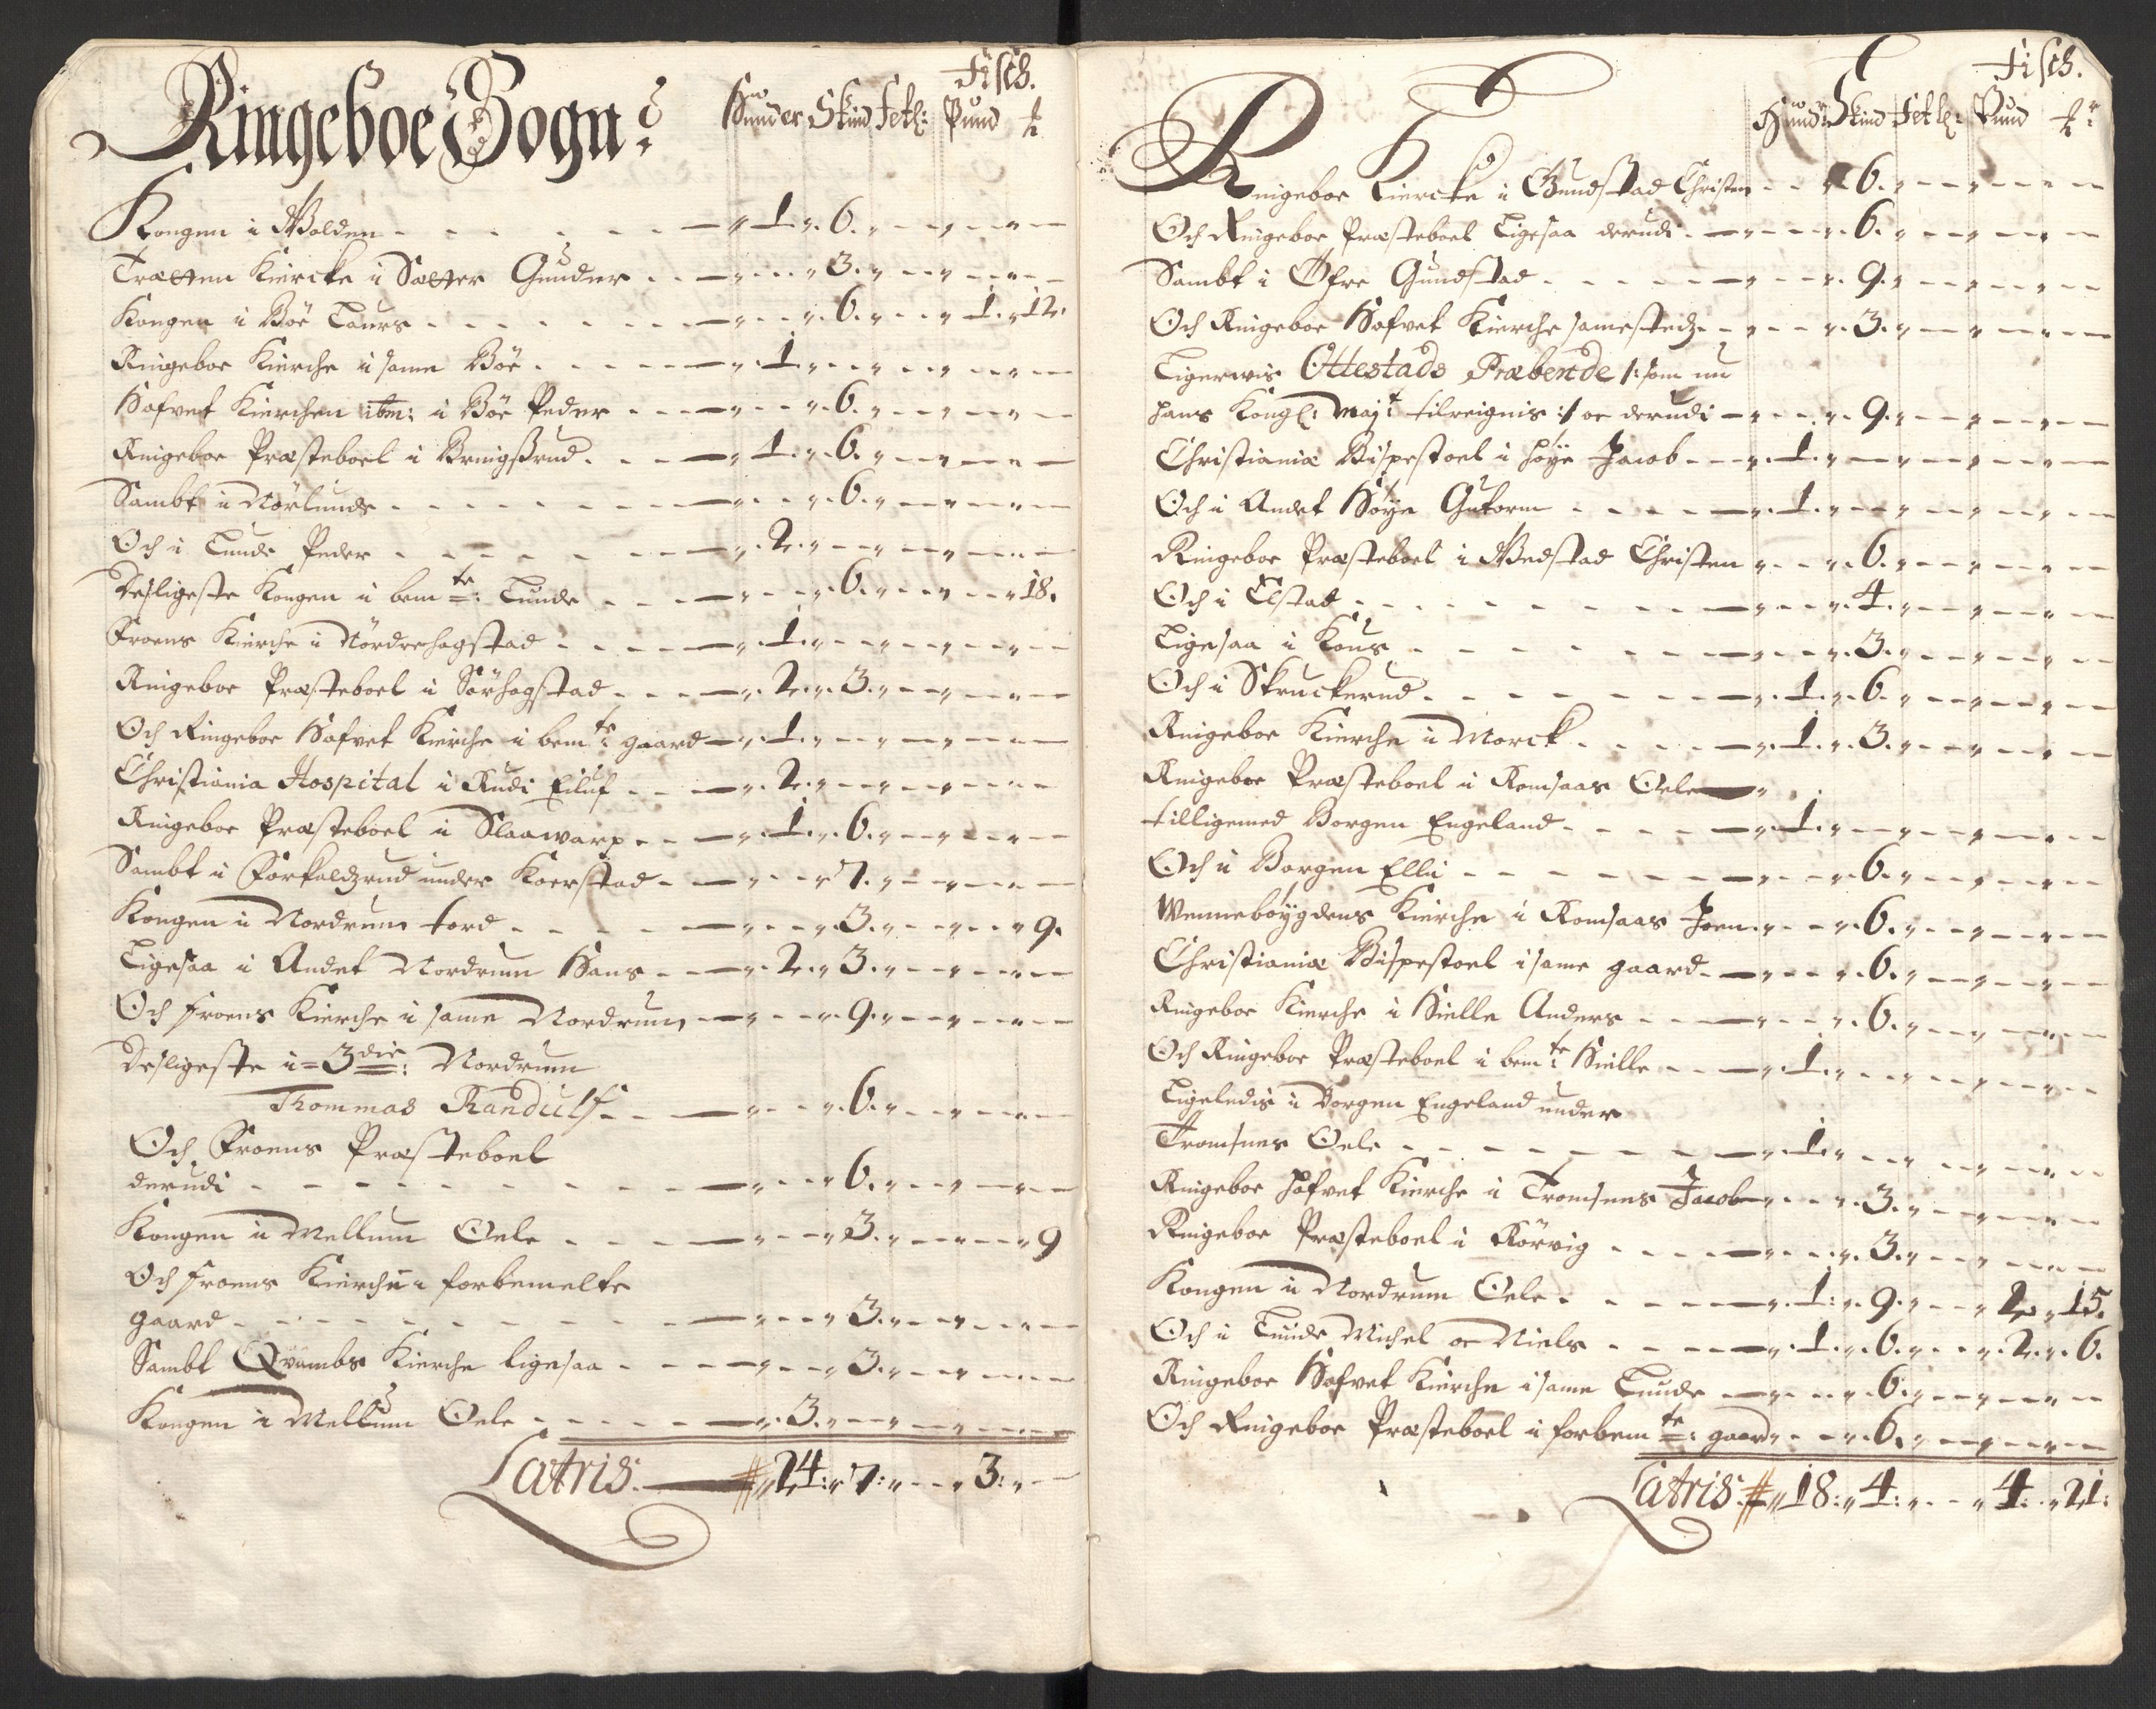 Ringeboe Sogn:
Fisch.
Hunder Skind Fetl: Pund ℔
Kongen i Wolden - - - - - - " 1. " 6. " - - " - - " - -
Trætten Kiercke i Sætter Gunder - - - " - - " 3. " - - " - - " - -
Kongen i Böe Laurs - - - - - " - - " 6. " - - " 1. " 12.
Ringeboe Kierche i same Böe - - - - " 1. " - - " - - " - - " - -
Hofvet Kierchen ibm: i Böe Peder - - - " - - " 6. " - - " - - " - -
Ringeboe Præsteboel i Bringßrud - - - " 1. " 6. " - - " - - " - -
Sambt i Nörlunde - - - - - " - - " 6. " - - " - - " - -
Och i Lunde Peder - - - - - " 2. " - - " - - " - - " - -
Desligeste Kongen i bemte: Lunde - - - " - - " 6. " - - " - - " 18.
Froens Kierche i Nördrehagstad - - - " 1. " - - " - - " - - " - -
Ringeboe Præsteboel i Sörhagstad - - - " 2. " 3. " - - " - - " - -
Och Ringeboe Hofvet Kierche i bemte: gaard " 1. " - - " - - " - - " - -
Christiania Hospital i Rudi Eiluf - - - " 2. " - - " - - " - - " - -
Ringeboe Præsteboel i Slaawarp - - - " 1. " 6. " - - " - - " - -
Sambt i Forkaldzrud under Kaerstad - - " - - " 7. " - - " - - " - -
Kongen i Nordrum tord - - - - " - - " 3. " - - " - - " 9.
Ligesaa i Andet Nordrum Hans - - - " 2. " 3. " - - " - - " - -
Och Froens Kierche i same Nordrum " - - " 9. " - - " - - " - -
Desligeste i = 3die: Nordrum
Thommas Randulf - - - " - - " 6. " - - " - - " - -
Och Froens Præsteboel
derudi - - - - - - " - - " 6. " - - " - - " - -
Kongen i Mellum Oele - - - - " - - " 3. " - - " - - " 9
Och Froens Kierche i forbemelte
gaard - - - - - - " - - " 3. " - - " - - " - -
Sambt Qvambs Kierche ligesaa - - - " - - " 3. " - - " - - " - -
Kongen i Mellum Oele - - - - " 3. " - - " - - " - - " - -
Latris. # " 24: " 7: " - - " 3: " - -
Fisch.
Hundr Skind Fetl: Pund ℔:
Ringeboe Kiercke i Gundstad Christen - - " 6. " - - " - - " - -
Och Ringeboe Præsteboel Ligesaa derudi - - " - - " 6. " - - " - - " - -
Sambt i Öfre Gundstad - - - - " - - " 9. " - - " - - " - -
Och Ringeboe Hofvet Kierche samestedz - " - - " 3. " - - " - - " - -
Ligerwis Ottestads Præbende /: som nu
hans Kongl: Maj:t tilreignis :/ oc derudi - " - - " 9. " - - " - - " - -
Christianiæ Bispestoel i Höye Jacob - - - " 1. " - - " - - " - - " - -
Och i Andet Höye Gutorm - - - - " 1. " - - " - - " - - " - -
Ringeboe Præsteboel i Wedstad Christen " - - " 6. " - - " - - " - -
Och i Elstad - - - - - - " - - " 4. " - - " - - " - -
Ligesaa i Kous - - - - - - " - - " 3. " - - " - - " - -
Och i Skruckerud - - - - - " 1. " 6. " - - " - - " - -
Ringeboe Kierche i Morck - - - - " 1. " 3. " - - " - - " - -
Ringeboe Præsteboel i Romsaas Oele "
tilligemed Borgen Engeland - - - - " 1. " - - " - - " - - " - -
Och i Borgen Elli - - - - - " - - " 6. " - - " - - " - -
Wenneböygdens Kierche i Romsaas Joen " - - " 6. " - - " - - " - -
Christianiæ Bispestoel i same gaard - " - - " 6. " - - " - - " - -
Ringeboe Kierche i Hielle Anders - - - " - - " 6. " - - " - - " - -
Och Ringeboe Præsteboel i bemte: Hielle - - " 1. " - - " - - " - - " - -
Ligeledis i Borgen Engeland under
Tromsnes Oele - - - - - " 1. " - - " - - " - - " - -
Ringeboe Hofvet Kierche i Tromsnes Jacob " - - " 3. " - - " - - " - -
Ringeboe Præsteboel i Körvig - - - - " - - " 3. " - - " - - " - -
Kongen i Nordrum Oele - - - - " 1. " 9. " - - " 2. " 15.
Och i Lunde Michel oc Niels - - - - " 1. " 6. " - - " 2. " 6.
Ringeboe Hofvet Kierche i same Lunde " - - " 6. " - - " - - " - -
Och Ringeboe Præsteboel i forbemte: gaard " - - " 6. " - - " - - " - -
Latris. # " 18: " 4: " - - " 4: " 21: